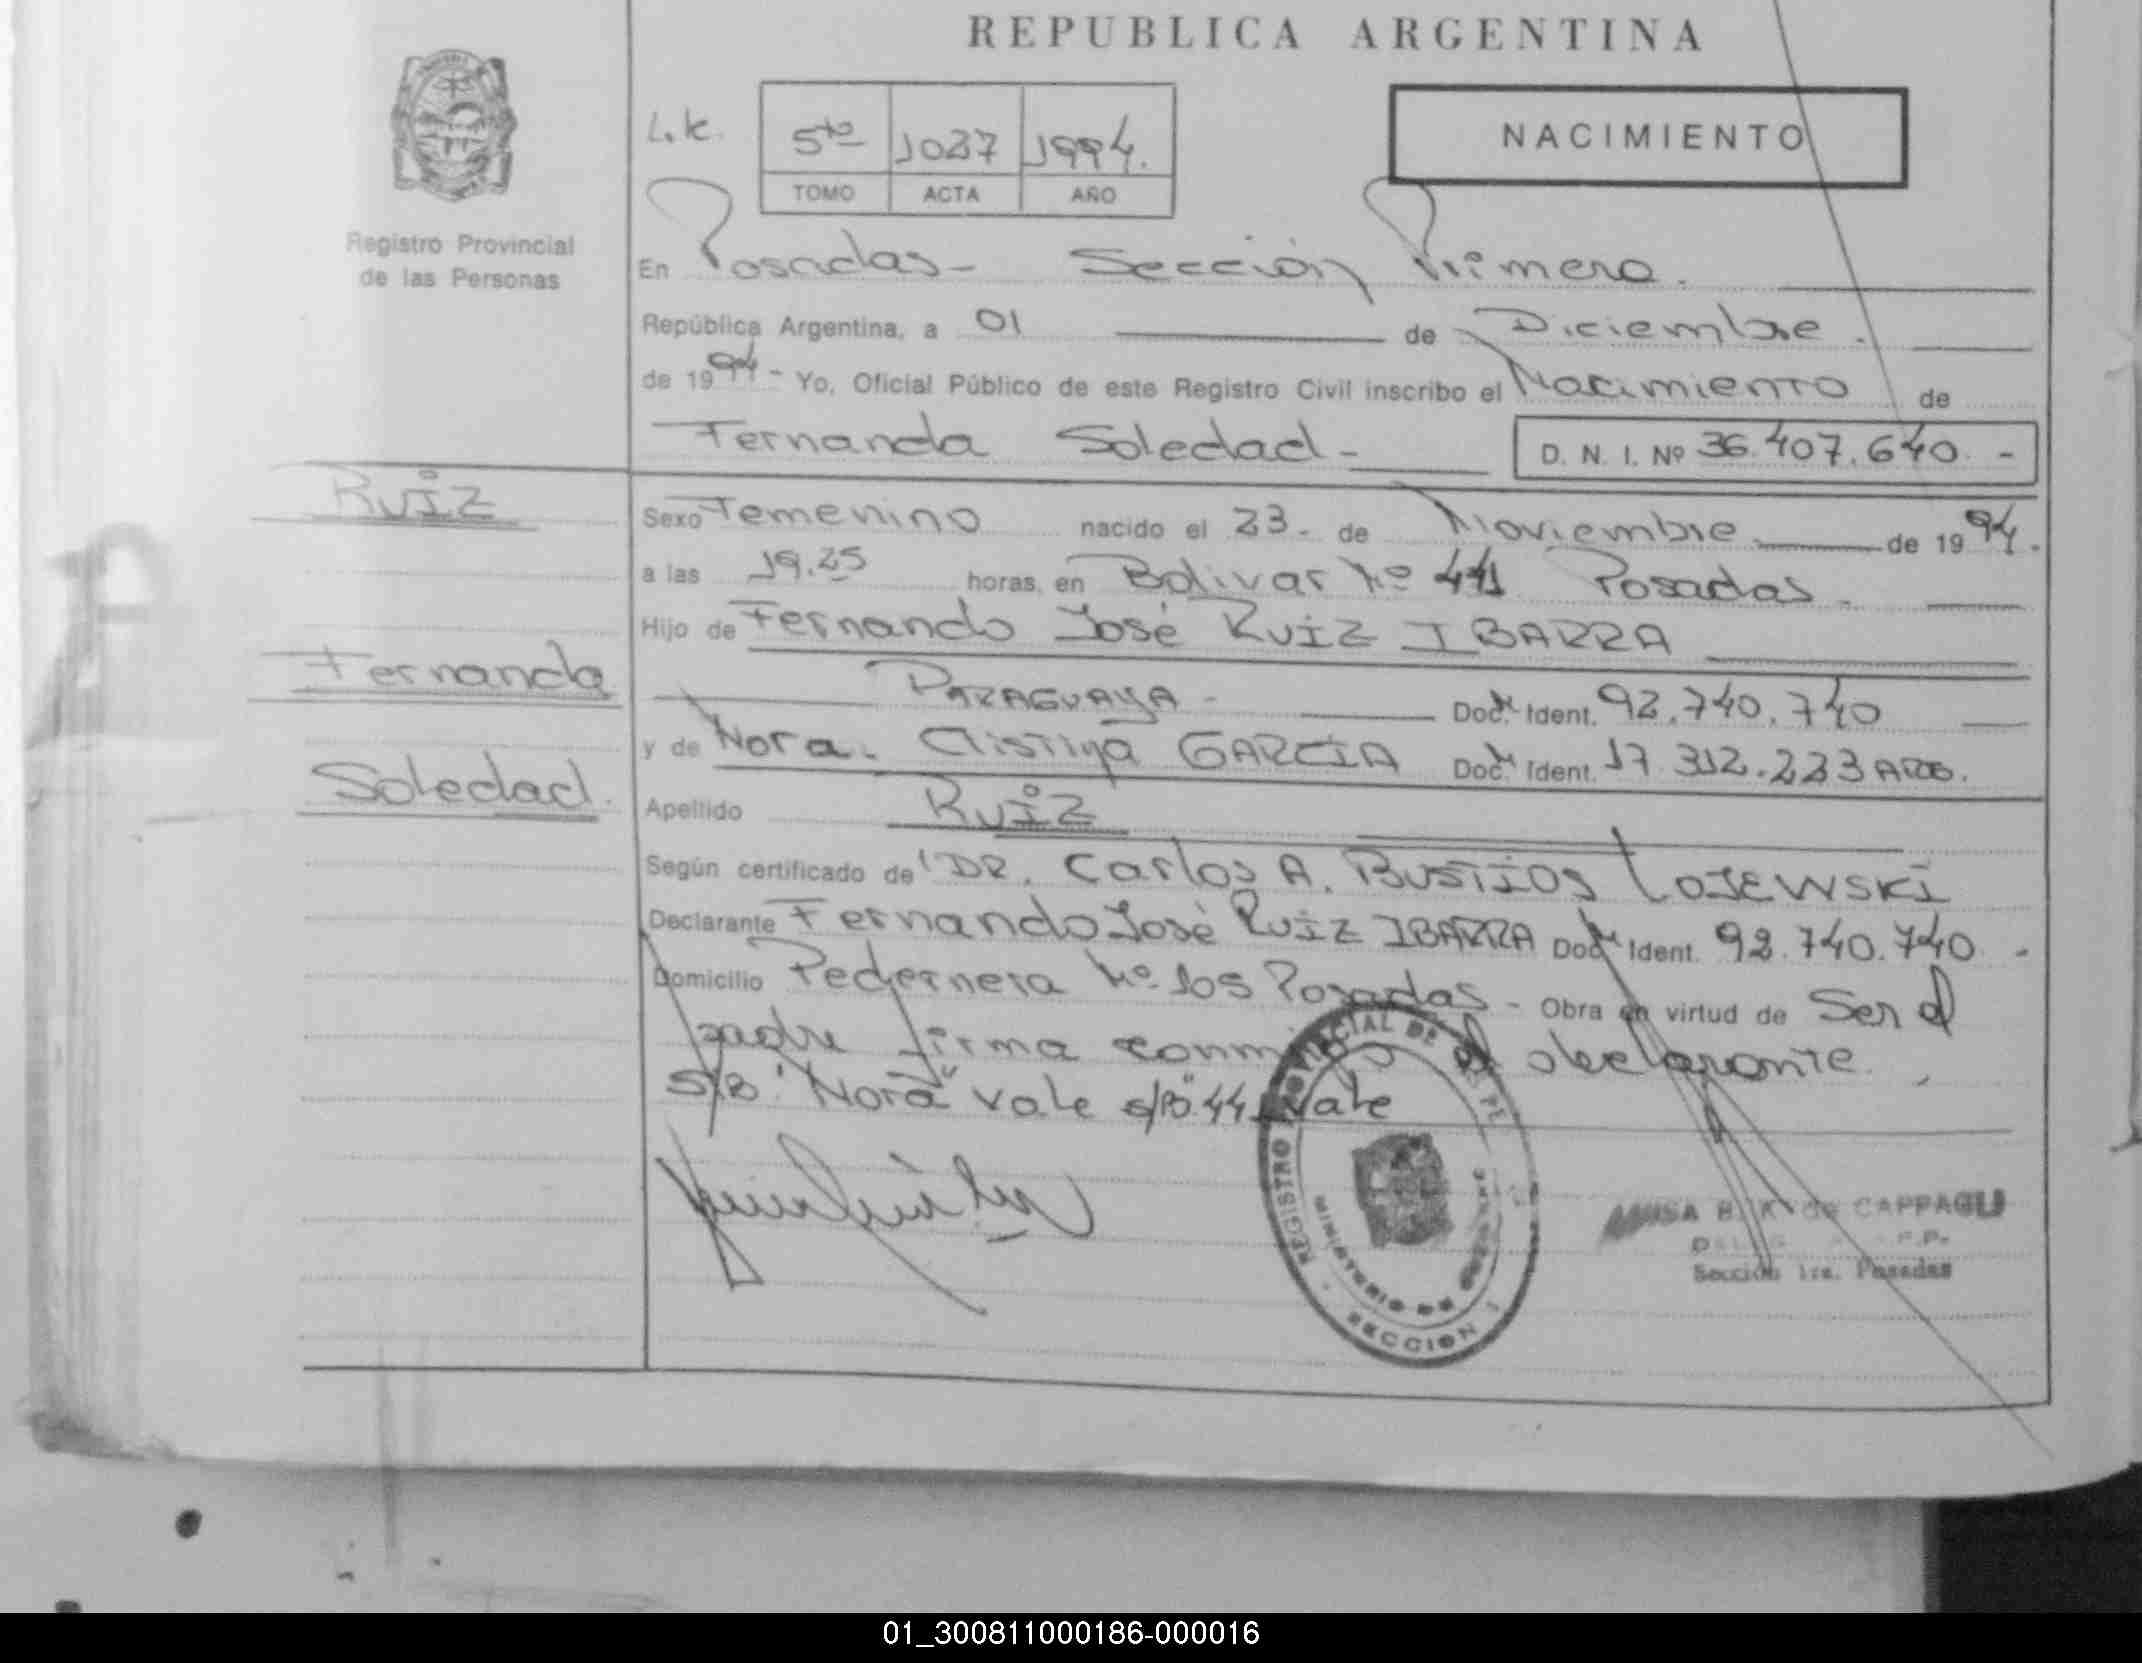 REPUBLICA ARGENTINA
L.k.
5to 1027 1994.
TOMO ACTA AÑO
NACIMIENTO
Registro Provincial
de las Personas
En Posadas - Sección Primera.
República Argentina, a 01 de Diciembre.
de 1994 - Yo, Oficial Público de este Registro Civil inscribo el Nacimiento de
Fernanda Soledad - D. N. I. Nº 36.407.640. -
Ruiz
Fernanda
Soledad.
Sexo Femenino nacido el 23. de Noviembre de 1994.
a las 19.25 horas, en Bolivar Nº 441 Posadas.
Hijo de Fernando José Ruiz IBARRA
PARAGUAYA - Doc. Ident. 92.740.740
y de Nora. Cristina GARCIA Doc. Ident. 17.312.223 ARG.
Apellido Ruiz
Según certificado de DR. Carlos A. BUSTIOS LOJEWSKI
Declarante Fernando José Ruiz IBARRA Doc. Ident. 92.740.740. -
Domicilio Pedernera Nº 105 Posadas - Obra en virtud de Ser el
padre firma conmigo el declarante.
S/B "Nora" vale s/B "44" vale
REGISTRO PROVINCIAL DE LAS PE
MINISTERIO DE GOBIERNO
SECCION 1
CAPPAGLI
Sección 1ra. Posadas
01_300811000186-000016